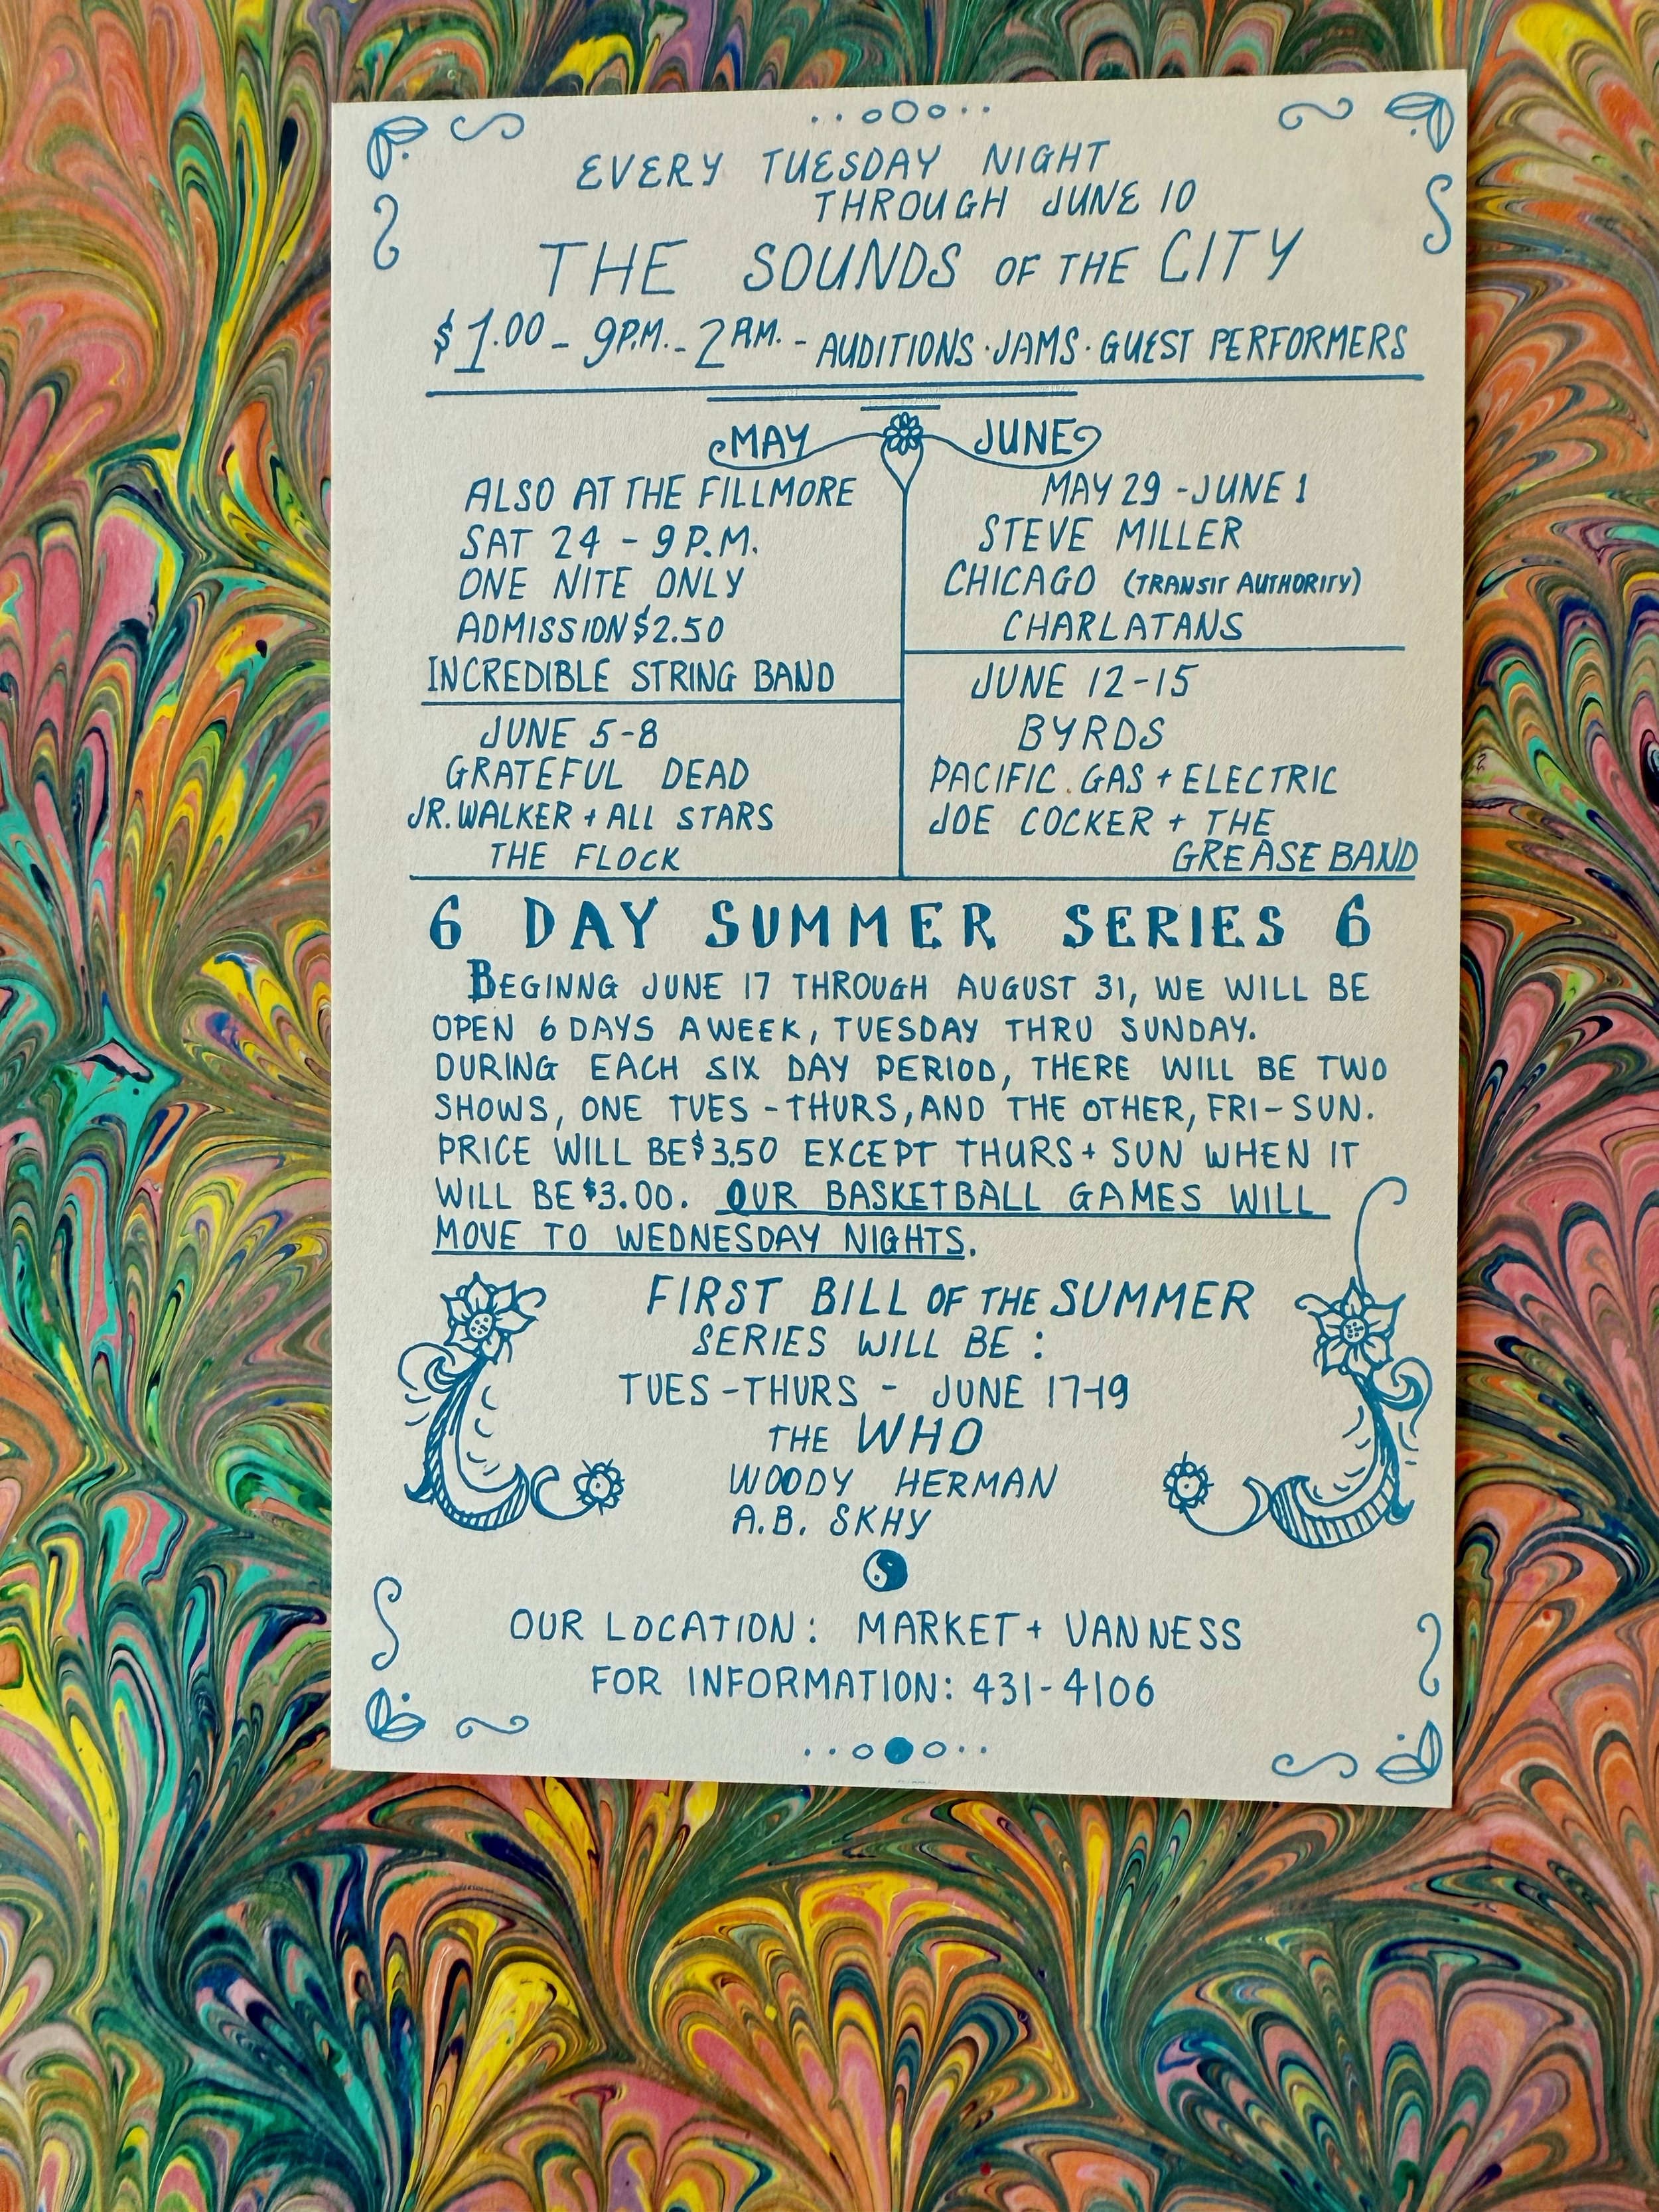 EVERY TUESDAY NIGHT
THROUGH JUNE 10
THE SOUNDS OF THE CITY
$1.00 - 9 P.M. - 2 A.M. - AUDITIONS · JAMS · GUEST PERFORMERS
MAY
ALSO AT THE FILLMORE
SAT 24 - 9 P.M.
ONE NITE ONLY
ADMISSION $2.50
INCREDIBLE STRING BAND
JUNE 5-8
GRATEFUL DEAD
JR. WALKER + ALL STARS
THE FLOCK
JUNE
MAY 29 - JUNE 1
STEVE MILLER
CHICAGO (TRANSIT AUTHORITY)
CHARLATANS
JUNE 12-15
BYRDS
PACIFIC GAS + ELECTRIC
JOE COCKER + THE
GREASE BAND
6 DAY SUMMER SERIES 6
BEGINNG JUNE 17 THROUGH AUGUST 31, WE WILL BE
OPEN 6 DAYS A WEEK, TUESDAY THRU SUNDAY.
DURING EACH SIX DAY PERIOD, THERE WILL BE TWO
SHOWS, ONE TUES - THURS, AND THE OTHER, FRI - SUN.
PRICE WILL BE $3.50 EXCEPT THURS + SUN WHEN IT
WILL BE $3.00. OUR BASKETBALL GAMES WILL
MOVE TO WEDNESDAY NIGHTS.
FIRST BILL OF THE SUMMER
SERIES WILL BE :
TUES - THURS - JUNE 17-19
THE WHO
WOODY HERMAN
A.B. SKHY
OUR LOCATION : MARKET + VAN NESS
FOR INFORMATION: 431-4106